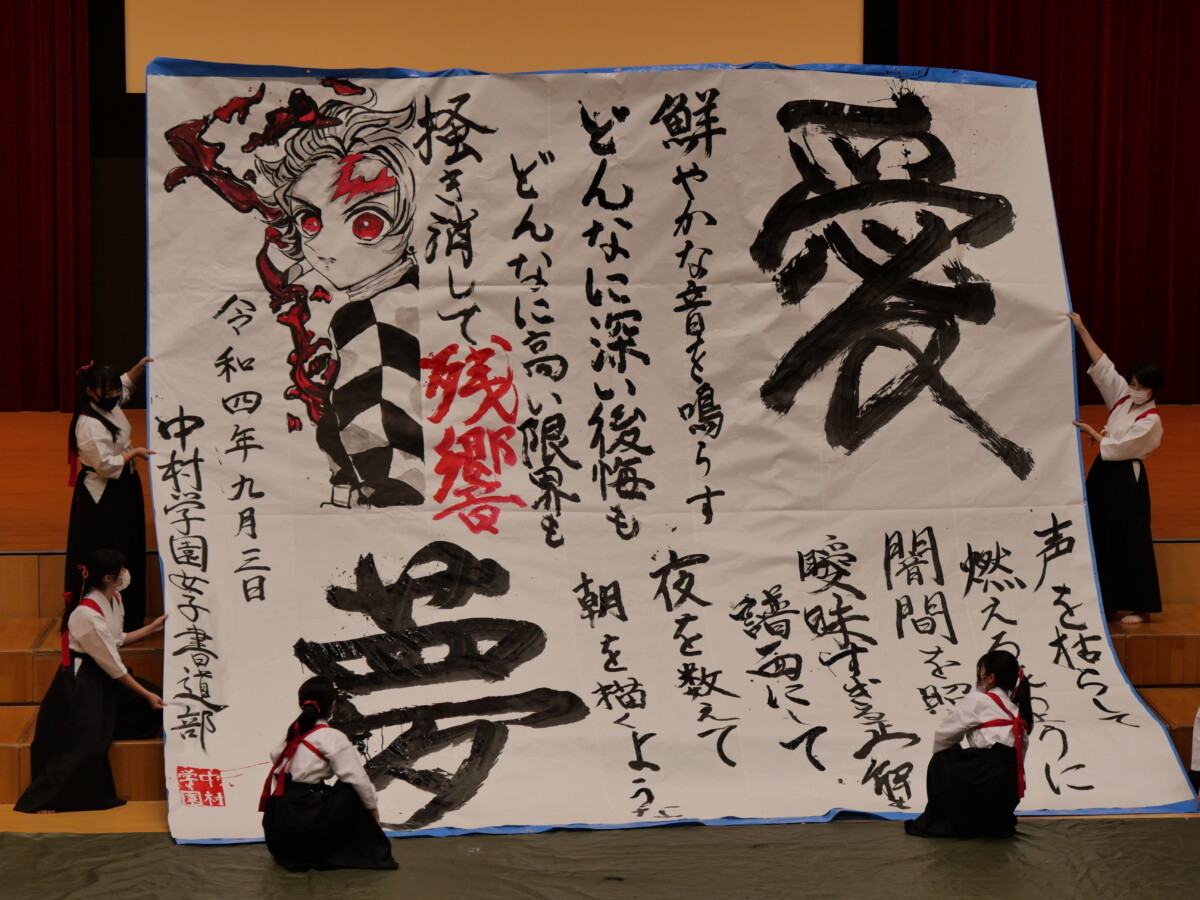 愛
声を枯らして
燃える ように
闇間を照
曖昧すぎる正解
譜面にして
夜を数えて
朝を描くような
鮮やかな音を鳴らす
どんなに深い後悔も
どんなに高い限界も
掻き消して残響
夢
令和四年九月三日
中村学園女子書道部
中村学園